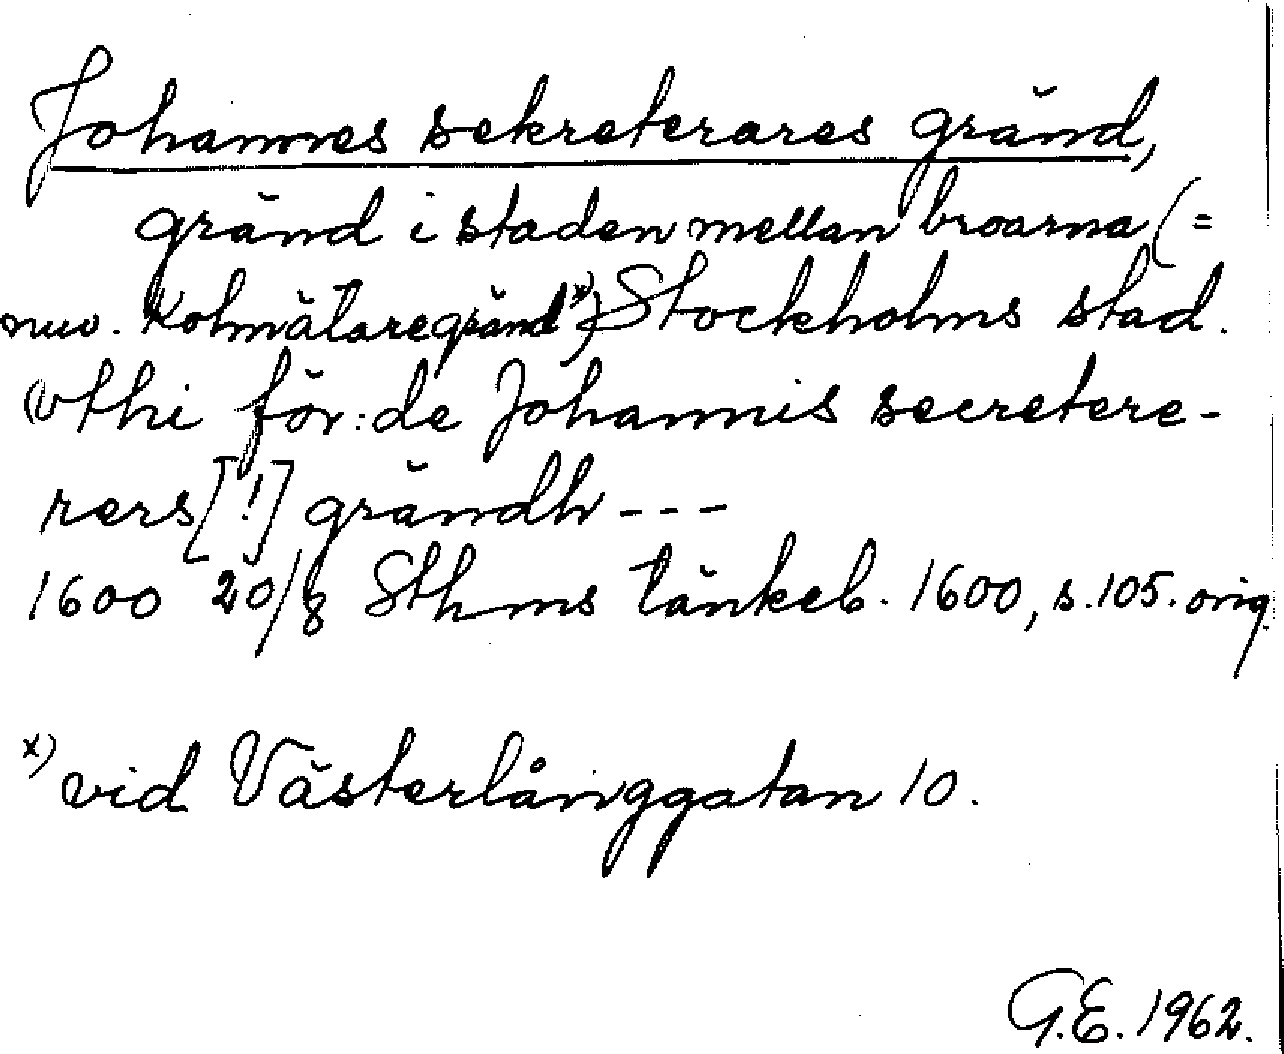 Johannes sekreterares gränd,
gränd i staden mellan broarna (=
nuv. Kolmätaregränd x)) Stockholms stad.
(vthi för:de Johannis secretere-
rers [!] grändh ---
1600 20/8 Sthms tänkeb. 1600, s. 105. orig.
x) vid Västerlånggatan 10.
G.E. 1962.